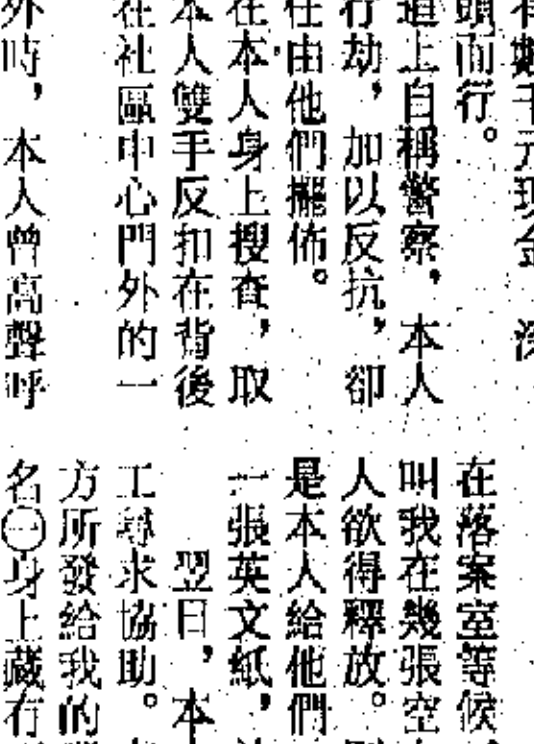 有數千元現金 深
頭而行。
道上自稱警察，本人
行劫，加以反抗，卻
任由他們擺佈。
在本人身上搜查，取
本人雙手反扣在背後
在社區中心門外的一
外時，本人曾高聲呼
在落案室等候
叫我在幾張空
人欲得釋放。
是本人給他們
一張英文紙，
翌日，本
工尋求協助。
方所發給我的
名㊀身上藏有